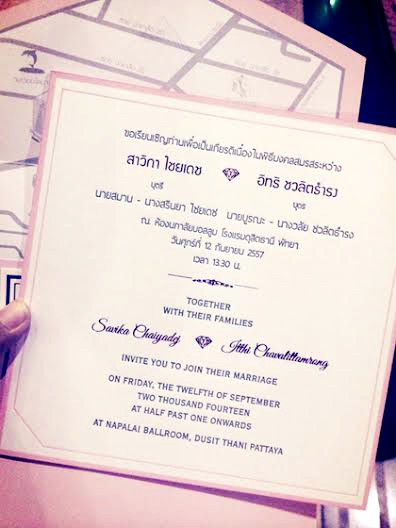 ขอเรียนเชิญท่านเพื่อเป็นเกียรติเนื่องในพิธีมงคลสมรสระหว่าง
สาวิกา ไชยเดช อิทธิ ชวลิตธำรง
บุตรี บุตร
นายสมาน - นางสรินยา ไชยเดช นายบูรณะ - นางวลัย ชวลิตธำรง
ณ. ห้องนภาลัยบอลลูม โรงแรมดุสิตธานี พัทยา
วันศุกร์ที่ 12 กันยายน 2557
เวลา 13.30 น.
TOGETHER
WITH THEIR FAMILIES
Savika Chaiyadej Itthi Chavalittamrong
INVITE YOU TO JOIN THEIR MARRIAGE
ON FRIDAY, THE TWELFTH OF SEPTEMBER
TWO THOUSAND FOURTEEN
AT HALF PAST ONE ONWARDS
AT NAPALAI BALLROOM, DUSIT THANI PATTAYA